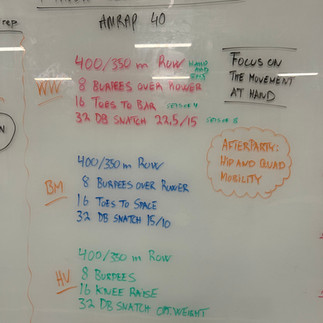 rep
AMRAP 40
400/350 m Row
WW
8 Burpees over Rower
16 Toes to Bar
32 DB Snatch 22,5/15
Focus on
the movement
at hand
400/350 m Row
8 Burpees over Rower
BM
16 Toes to Space
32 DB Snatch 15/10
Afterparty:
Hip and Quad
Mobility
400/350 m Row
HV
8 Burpees
16 Knee Raise
32 DB Snatch opt. weight